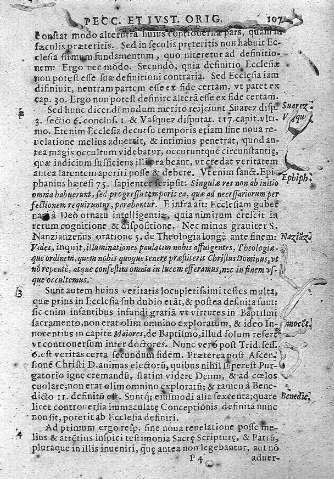 PECC. ET IVST. ORIG. 107
Constat modo alterutra huius controuersiæ pars, quàm in
sæculis præteritis. Sed in seculis præteritis non habuit Ec-
clesia firmum fundamentum, quo niteretur ad definitio-
nem: Ergo nec modo. Secundò, quia definitio Ecclesiæ
non potest esse suæ definitioni contraria. Sed Ecclesia iam
definiuit, neutram partem esse ex fide certam, vt patet ex
cap. 30. Ergo non potest definire alterã esse ex fide certam.
2 Sed hunc dicendi modum meritò reijciunt Suarez disp.
3. sectio 6. conclus. 1. & Vasquez disputat. 117. capit. vltim-
o. Etenim Ecclesia decursu temporis etiam sine noua re-
uelatione melius aduertit, & intimius penetrat, quod an-
tea magis occultum videbatur; occurruntque circunstantię,
quæ indicium sufficiens illi præbeant, vt credat veritatem
antea latentem aperiri posse & debere. Vt enim sanct. Epi-
phanius hæresi 75. sapienter scripsit. Singulæ res non ab initio
omnia habuerunt, sed progressu temporis ea, quæ ad necessariorum per-
fectionem requiruntur, parabantur. Et infra ait: Ecclesiam guber-
nari à Deo ornatu intelligentiæ, quia nimirum crescit in
rerum cognitione & dispositione. Nec minus grauiter S.
Nanzianzenus oratione 5. de Theologia longè ante finem:
Vides, inquit, illuminationes paulatim nobis affulgentes, Theologiæ-
que ordinem, quem nobis quoque tenere præstiterit Christus Dominus, vt
no repentè, atque consestim omnia in lucem efferamus, nec in finem vs-
que occultemus.
3 Sunt autem huius veritatis locupletissimi testes multa,
quæ prius in Ecclesia sub dubio erãt, & postea definita sunt:
sic enim infantibus infundi gratiã vt virtutes in Baptismi
sacramento, non erat olim omnino exploratum, & ideo In-
nocentius in capite Maiores, de Baptismo, illud solum refert
vt controuersum inter doctores. Nunc verò post Trid. sess.
6. est veritas certa secundum fidem. Præterea post Ascen-
sionē Christi D. animas electorũ, quibus nihil superest Pur-
gatorio igne cremandũ, statim videre Deum, & ad cœlos
euolare; non erat olim omnino exploratũ; & tamen à Bene-
dicto 11. definitũ est. Suntq; eiusmodi alia sexcenta; quare
licet controuersia immaculatę Conceptionis definita nunc
non sit, poterit ab Ecclesia definiri.
Ad primum ergo resp. sine noua reuelatione posse me-
lius & attētius inspici testimonia Sacræ Scripturę, & Patrũ,
pluraque in illis inueniri, quę antea non legebantur, aut nõ
P 4 aduer-
Suarez
Vasqu
Epiph.
Nazianz
Innocēt.
Benedic.